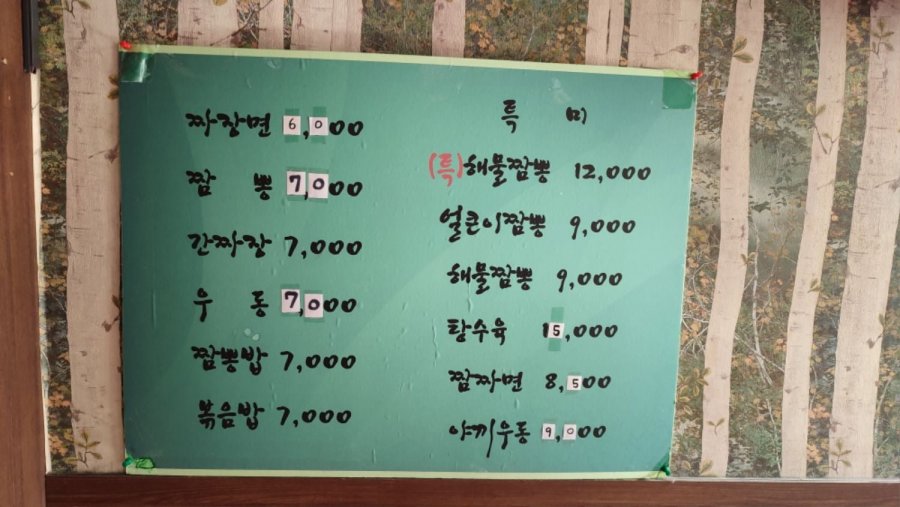 짜장면 6,000
짬 뽕 7,000
간짜장 7,000
우 동 7,000
짬뽕밥 7,000
볶음밥 7,000
특 미
(특)해물짬뽕 12,000
얼큰이짬뽕 9,000
해물짬뽕 9,000
탕수육 15,000
짬짜면 8,500
야끼우동 9,000